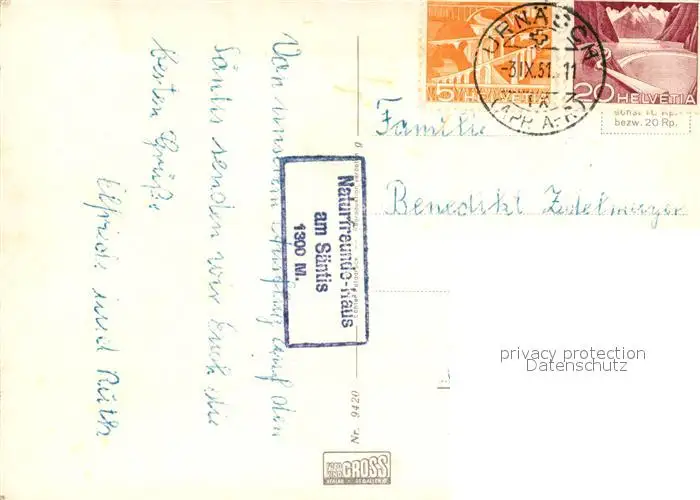 Von unserem Ausflug auf den
Säntis senden wir Euch die
besten Grüße
Elfriede und Ruth
Naturfreunde-Haus
am Säntis
1300 M.
5 HELVETIA
20 HELVETIA
URNÄSCH
-3.IX.51. 11
(APP. A.-RH.)
bezw. 20 Rp.
Familie
Benedikt
privacy protection
Datenschutz
Nr. 9420
GROSS